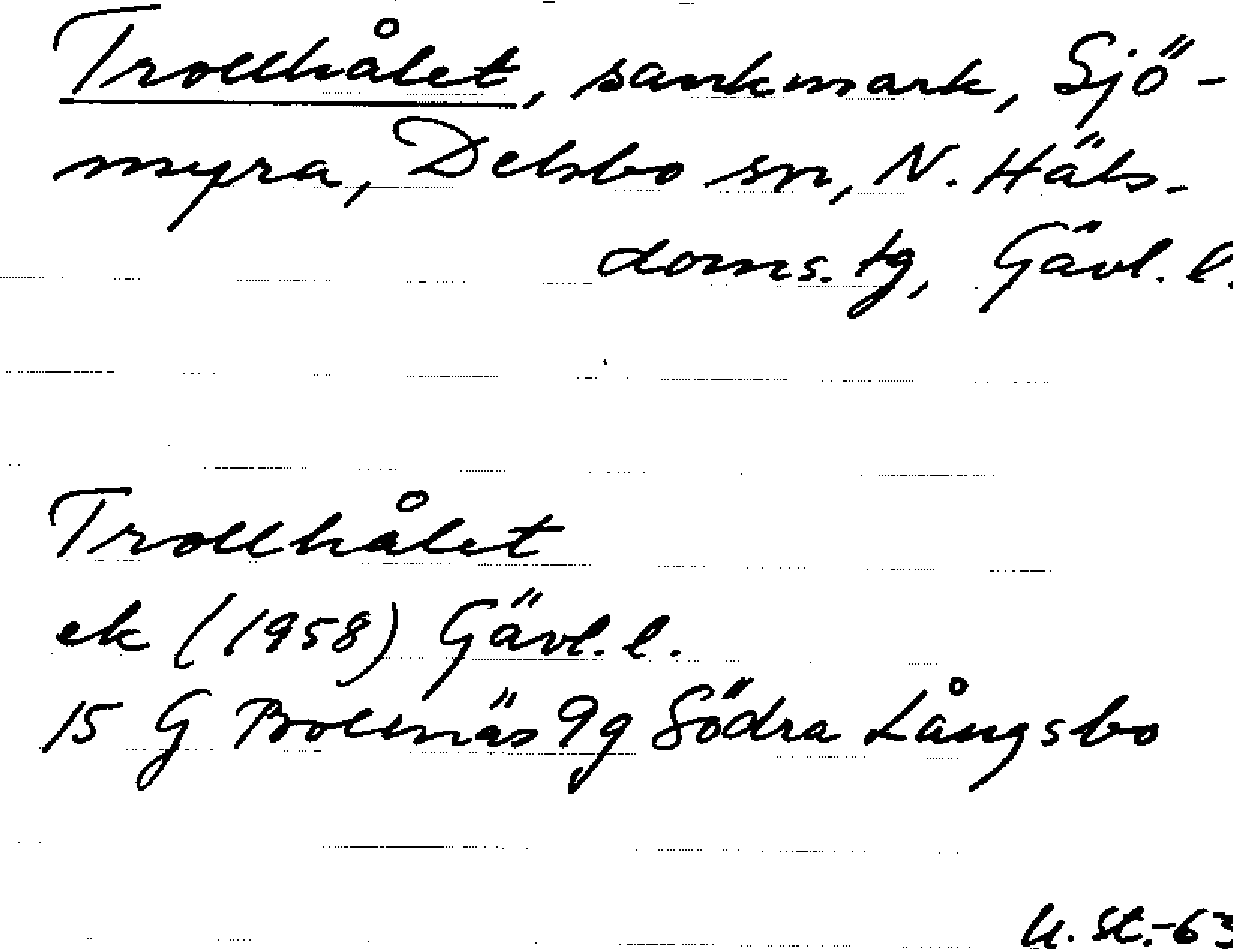 Trollhålet, sankmark, Sjö-
myra, Delsbo sn, N. Häls.
doms. tg, Gävl. l.
Trollhålet
ek (1958) Gävl. l.
15 G Bollnäs 9g Södra Långsbo
U. St.-63